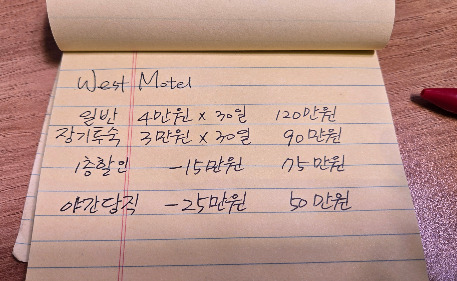 West Motel
일반 4만원 x 30일 120만원
장기투숙 3만원 x 30일 90만원
1층할인 -15만원 75만원
야간당직 -25만원 50만원